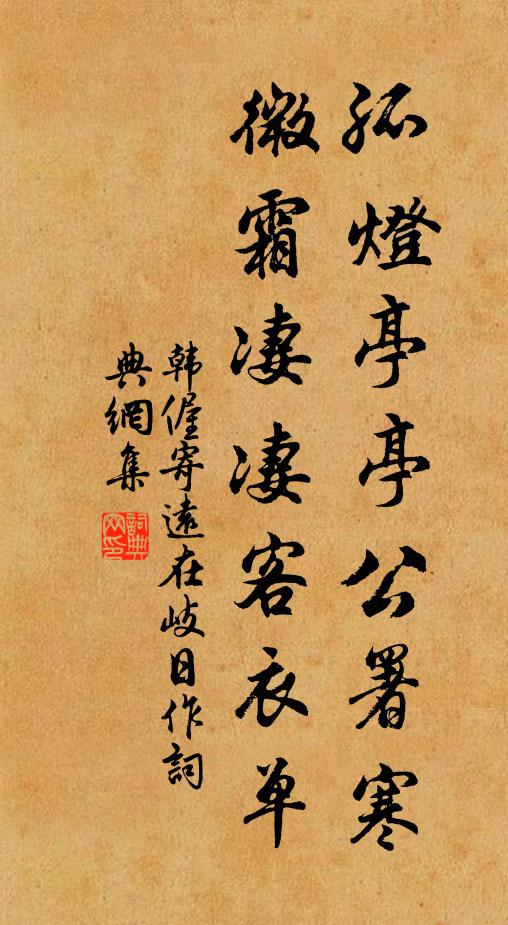 孤燈亭亭公署寒
微霜凄凄客衣单
韩偓寄遠在岐日作詞
典網集
詞典網印